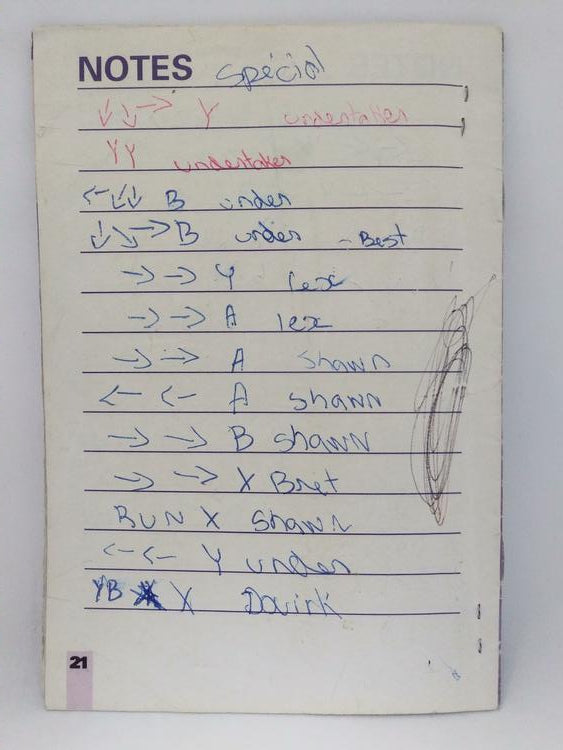 NOTES Spécial
↓ ↘ → Y undertaker
YY undertaker
← ↙ ↓ B under
↓ ↘ → B under - Best
→ → Y lex
→ → A lex
→ → A Shawn
← ← A Shawn
→ → B Shawn
→ → X Bret
RUN X Shawn
← ← Y under
YB X Doink
21